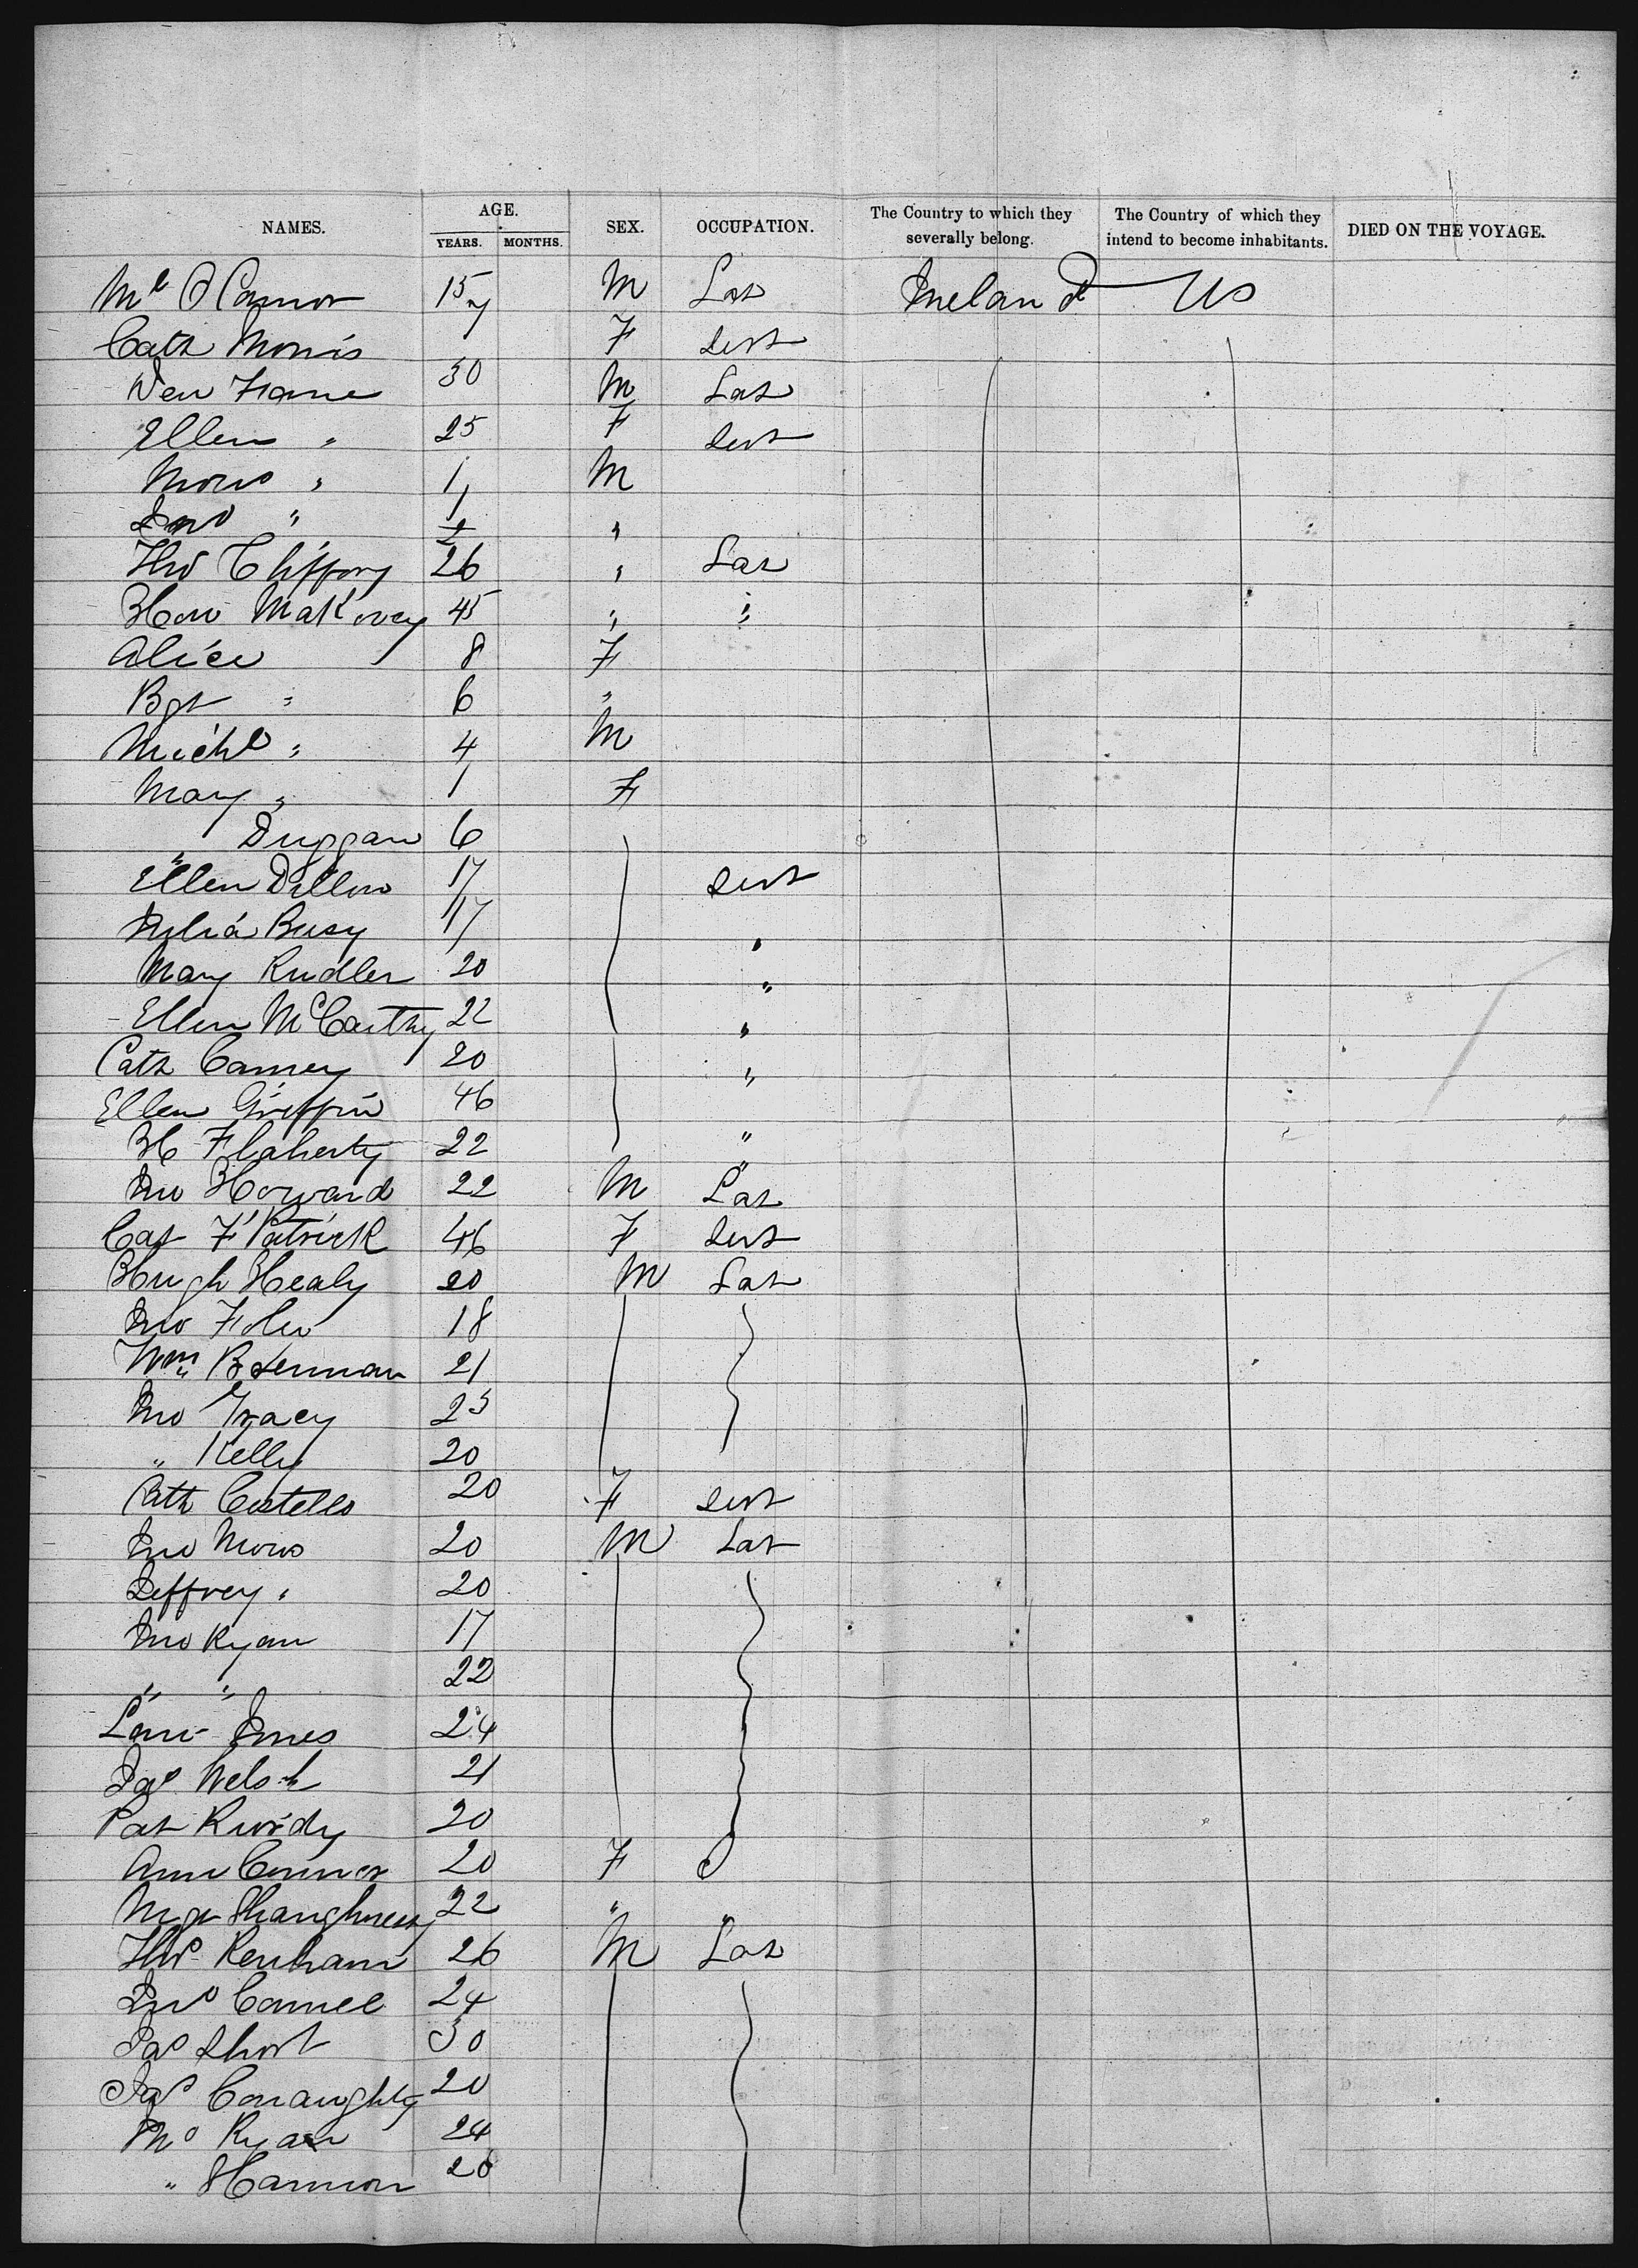 NAMES. AGE. SEX. OCCUPATION. The Country to which they severally belong. The Country of which they intend to become inhabitants. DIED ON THE VOYAGE.
YEARS. MONTHS.
Ml O Connor 15 M Lab Ireland US
Cath Morris " F Servt
30 M Lab
Ellen " 25 F Servt
" 1 M
Jno " "
Thos Clifford 26 " Lab
45 " "
Alice 8 F
Bgt " 6 "
Michl " 4 M
Mary " 1 F
" Duggan 6
Ellen Dillon 17 Servt
17 "
Mary Rudler 20 "
Ellen McCarthy 22 "
Cath Carney 20 "
Ellen Griffin 46
H Flaherty 22 "
Jno Howard 22 M Lab
Cat F'Patrick 46 F Servt
Hugh Healy 20 M Lab
Jno 18
Wm 21
Jno Tracy 23
" Kelly 20
Cath Costello 20 F Servt
Jno 20 M Lab
Jeffrey " 20
Jno Ryan 17
" " 22
Jones 24
Jas Welsh 21
Pat 20
Ann Connor 20 F S
Mgt Shaughnessy 22 " "
Thos 26 M Lab
Jno 24
Jas Short 30
Jas Conaughty 20
Ryan 24
" Hannon 20